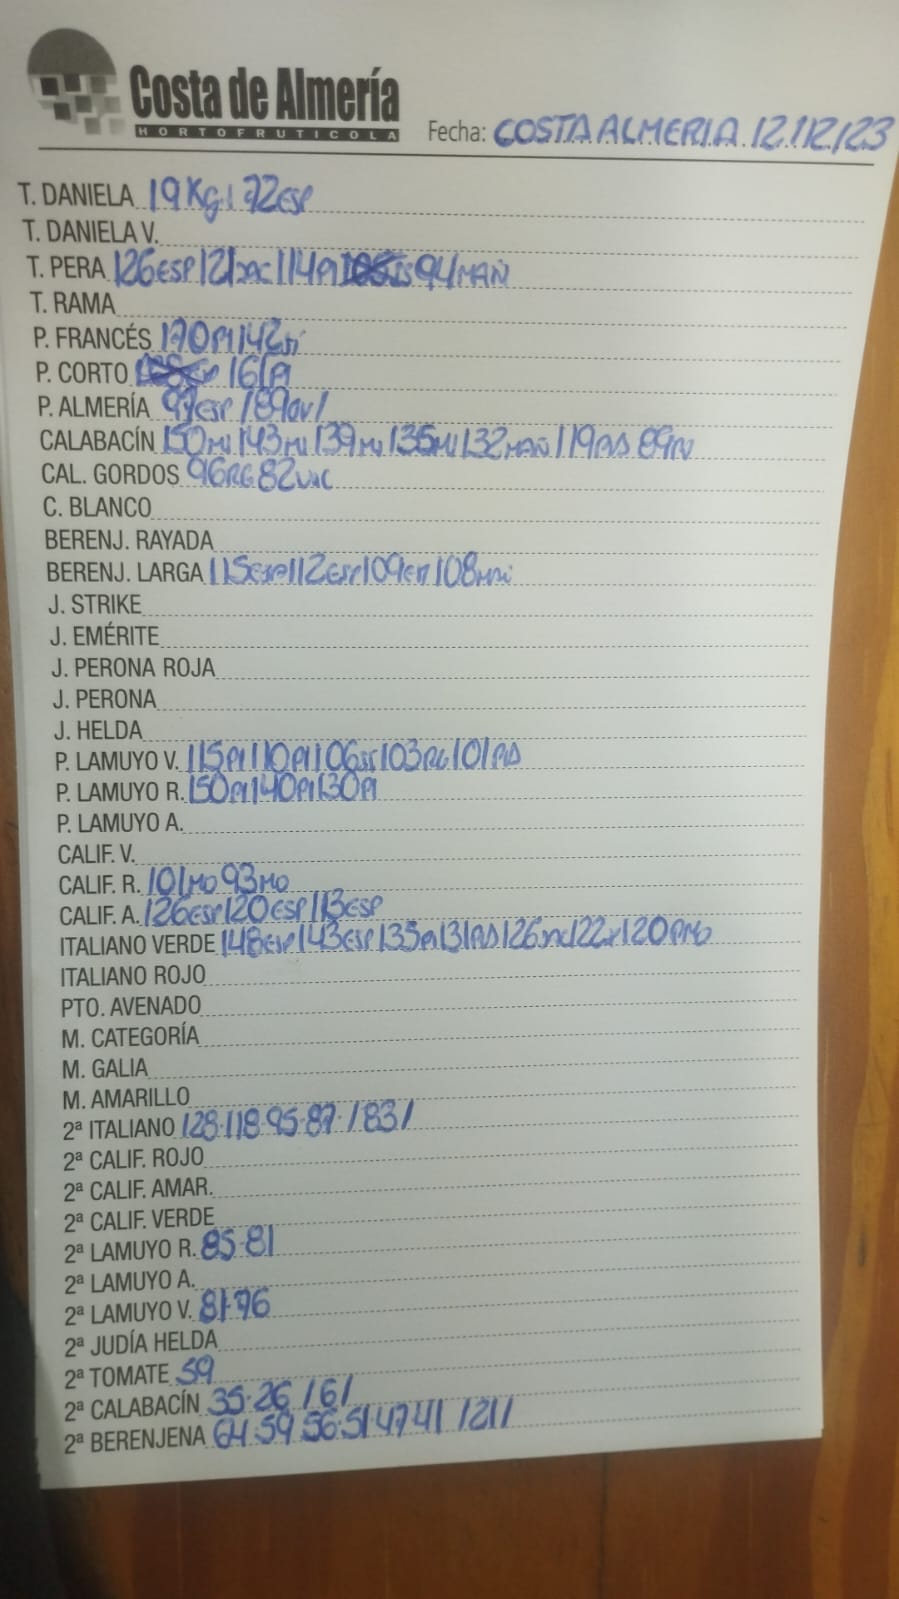 Costa de Almería
HORTOFRUTICOLA
Fecha: COSTA ALMERIA 12/12/23
T. DANIELA 19Kg 72ESP
T. DANIELA V.
T. PERA 126ESP 121 114PI 94MAÑ
T. RAMA
P. FRANCÉS 170PI 142
P. CORTO 161PI
P. ALMERÍA 97ESP / 89
CALABACÍN 150MU 143MU 139MU 135MU 132MAÑ 119 89
CAL. GORDOS 96RG 82
C. BLANCO
BERENJ. RAYADA
BERENJ. LARGA 115ESP 112ESP 109 108
J. STRIKE
J. EMÉRITE
J. PERONA ROJA
J. PERONA
J. HELDA
P. LAMUYO V. 115PI 110PI 106 103RG 101
P. LAMUYO R. 150PI 140PI 130PI
P. LAMUYO A.
CALIF. V.
CALIF. R. 101MO 93MO
CALIF. A. 126ESP 120ESP 113ESP
ITALIANO VERDE 148ESP 143ESP 135PI 131 126 122 120
ITALIANO ROJO
PTO. AVENADO
M. CATEGORÍA
M. GALIA
M. AMARILLO
2ª ITALIANO 128·118·95·87· /83/
2ª CALIF. ROJO
2ª CALIF. AMAR.
2ª CALIF. VERDE
2ª LAMUYO R. 85·81
2ª LAMUYO A.
2ª LAMUYO V. 81·76
2ª JUDÍA HELDA
2ª TOMATE 59
2ª CALABACÍN 35·26 /6/
2ª BERENJENA 64·59·56·51·47·41 /21/